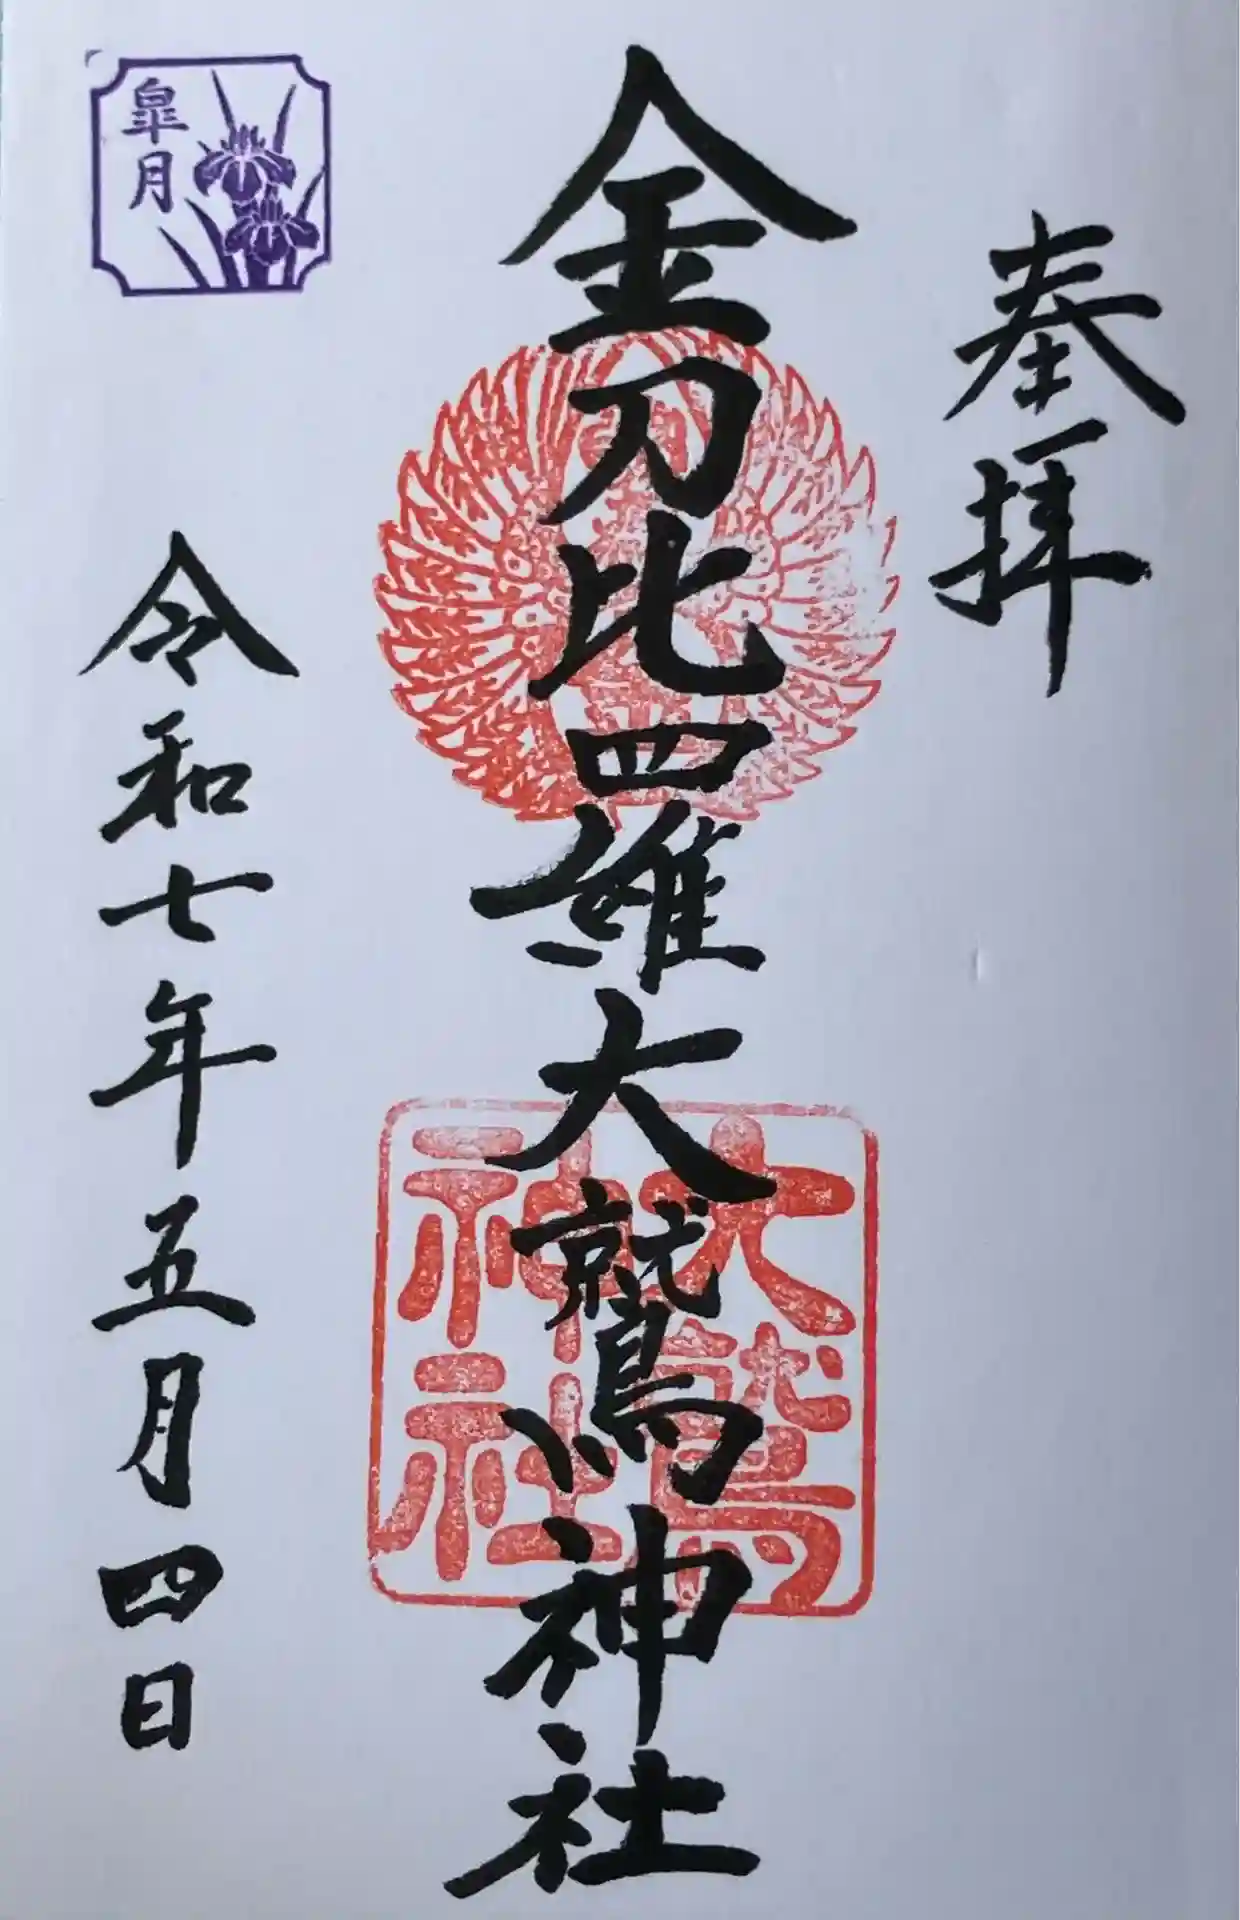 奉拝
金刀比羅大鷲神社
大鷲
神社
皐月
令和七年五月四日